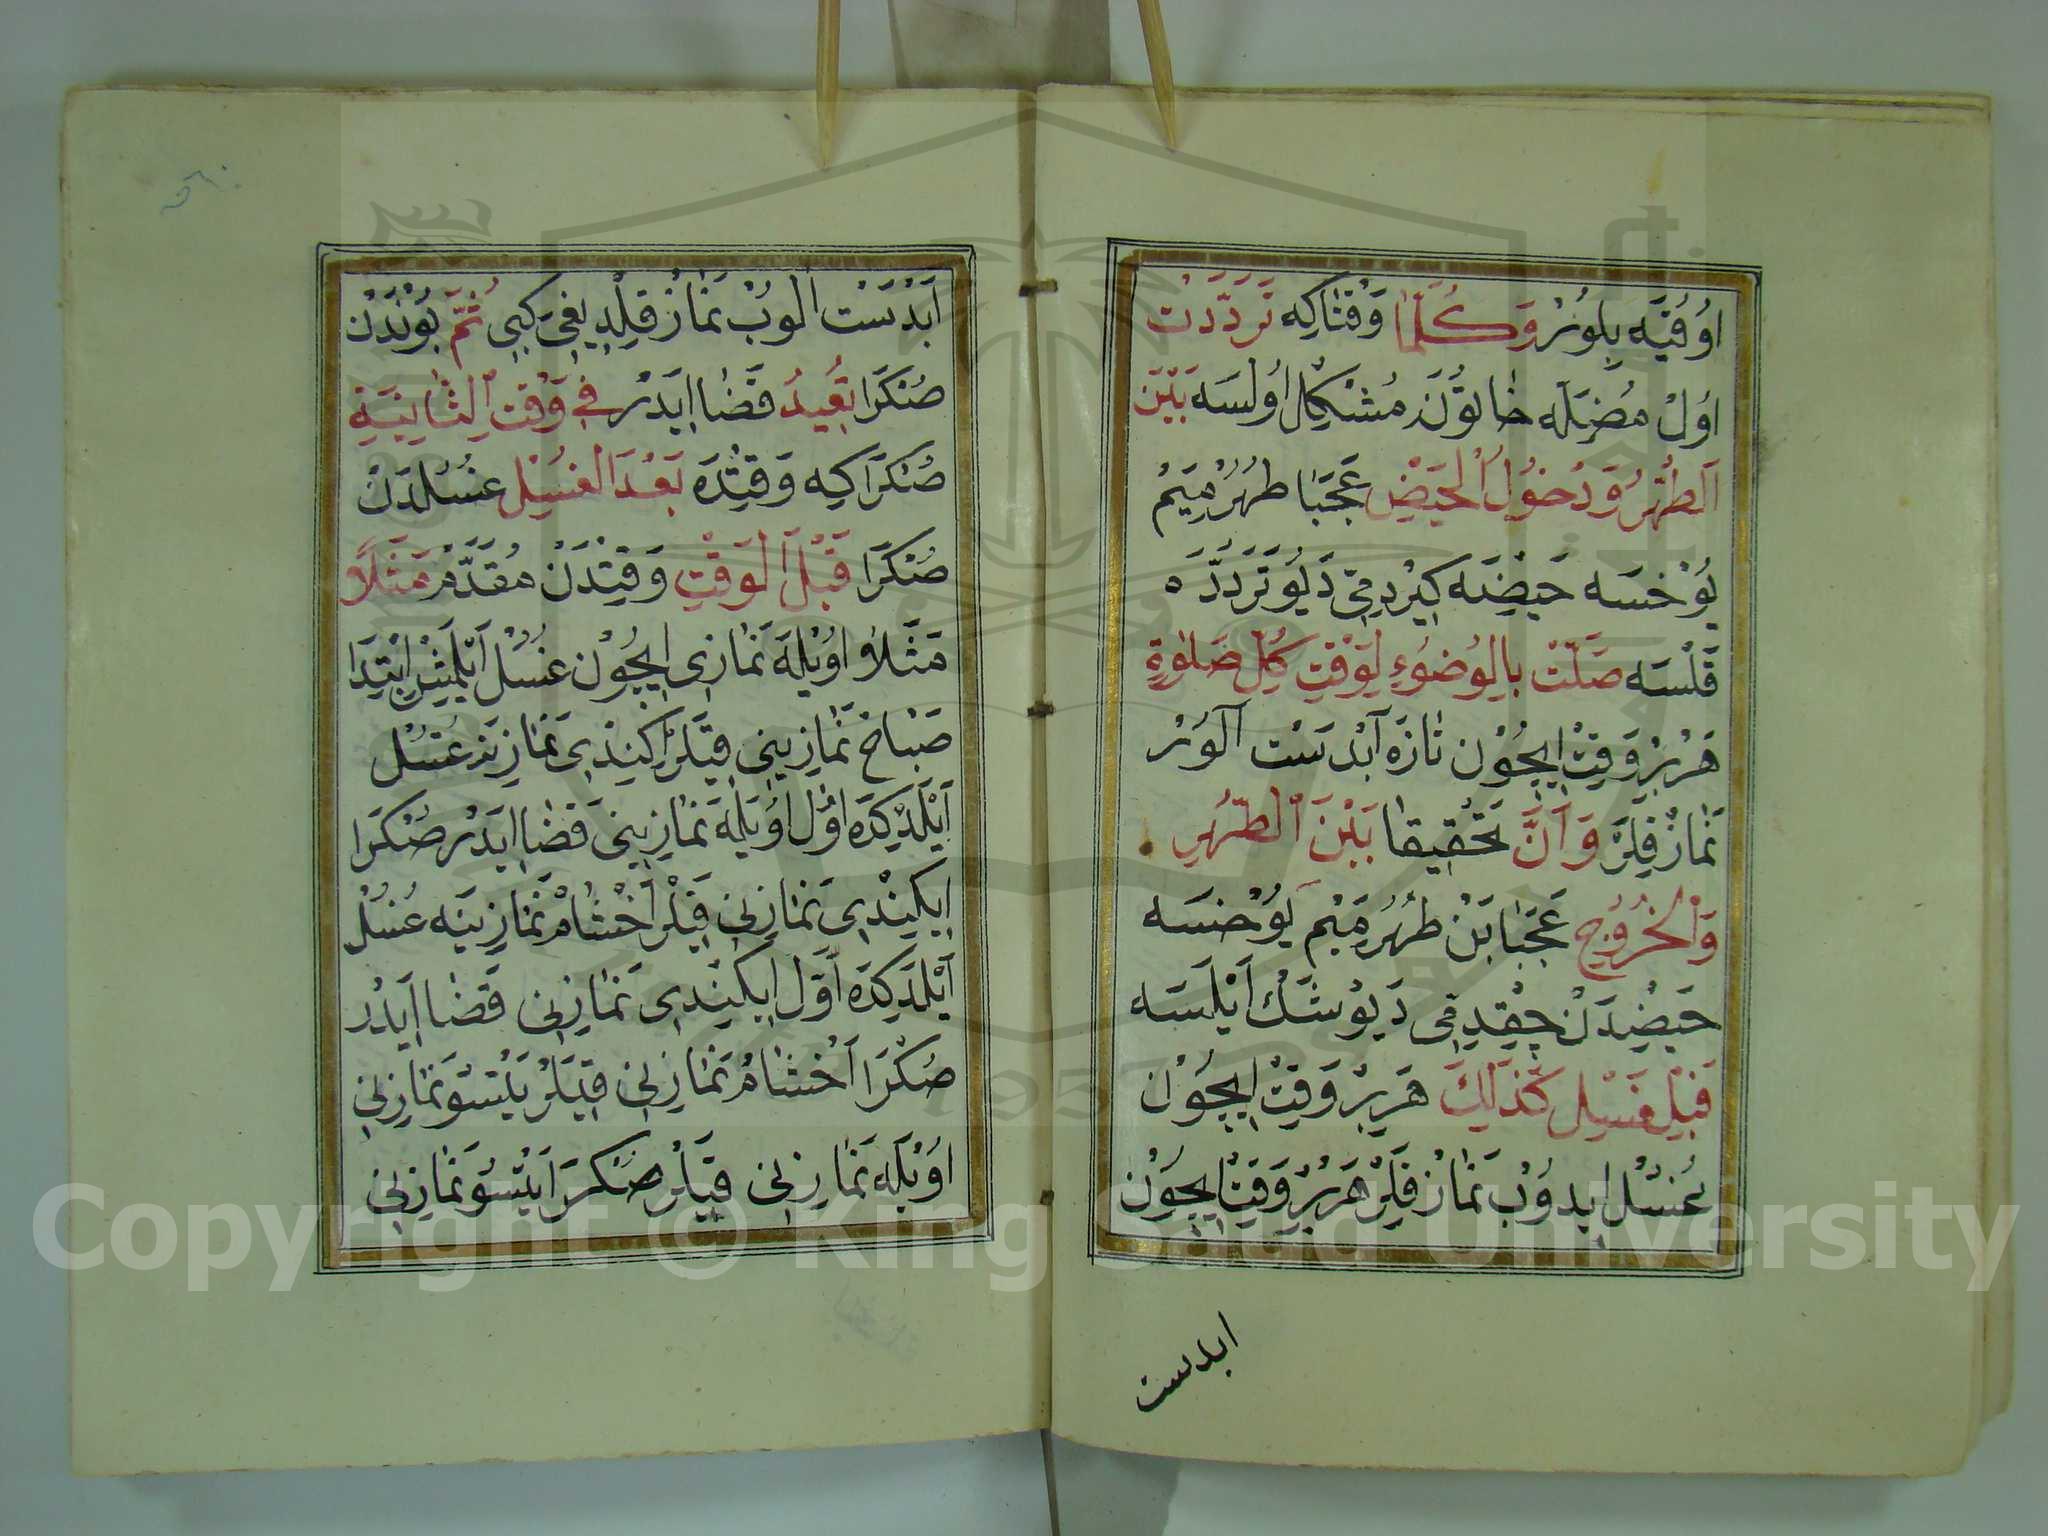 اوُقیَه بِلوُنُرْ وَكُلَّمَا وَقْتَاكِه تَرَدَّدَتْ
اوُلْ مُضِلَه خَاتوُنَه مُشْكِلْ اوُلْسَه بَیْنَ
اَلطُّهْرِ وَدُخوُلِ الْحَیْضِ عَجَبَا طُهُرْمِیَمْ
یُوْخسَه حَیْضَه كِیرْدِمْمِی دَیوُ تَرَدَّدَه
قَلْسَه صَلَّتْ بِالْوُضوُءِ لِوَقْتِ كُلِّ صَلٰوةٍ
هَرْبِرْ وَقِتْ اِیچُوْن تَازَه آبْدَسْت آلوُرْ
نَمَازْ قِلَرْ وَاَنَّ تَحْقِیقَا بَیْنَ الطُّهْرِ
وَالْخُرُوْجِ عَجَبَا بَنْ طُهُرْمِیَمْ یُوْخسَه
حَیْضِدَنْ چِقْدِمْمِی دَیوُ شَكْ اَیْلَسَه
فَبِالْغُسْلِ كَذٰلِكَ هَرْبِرْ وَقِتْ اِیچُوْن
غُسُلْ اِیدوُبْ نَمَازْ قِلَرْ هَرْبِرْ وَقِتْ اِیچُوْن
ابدست
اَبْدَسْت الوُبْ نَمَازْ قِلْدِیغِی كِبِی ثُمَّ بُوْنْدَنْ
صُنْكَرَا تُعِیدُ قَضَا اِیدَرْ فِی وَقْتِ الثَّانِیَةِ
صُنْكَرَاكِه وَقِتْدَه بَعْدَ الْغُسْلِ غُسُلْدَنْ
صُنْكَرَا قَبْلَ الْوَقْتِ وَقِتْدَنْ مُقَدَّمْ مَثَلاً
مَثَلاً اوُیْلَه نَمَازِی اِیچُوْن غُسُلْ اَیْلَمِشْدِر اِبْتِدَا
صَبَاح نَمَازِینِی قِیلَرْ اِكِنْدِی نَمَازِینَه غُسُلْ
اَیْلَدِیكَدَه اوَّلْ اوُیْلَه نَمَازِینِی قَضَا اِیدَرْ صُنْكَرَا
اِیكِینْدِی نَمَازِنِی قِیلَرْ اَخْشَامْ نَمَازِینَه غُسُلْ
اَیْلَدِیكَدَه اَوَّلْ اِیكِینْدِی نَمَازِنِی قَضَا اِیدَرْ
صُنْكَرَا اَخْشَامْ نَمَازِنِی قِیلَرْ یَتْسُو نَمَازِنِی
اوُیْلَه نَمَازِنِی قِیلَرْ صُنْكرَا یَتْسُو نَمَازِنِی
Copyright © King Saud University
1957